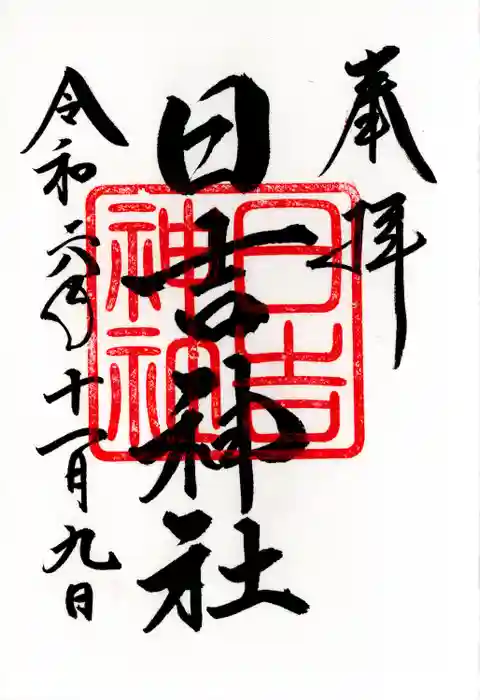 奉拝
日吉神社
令和六年十一月九日
日吉
神